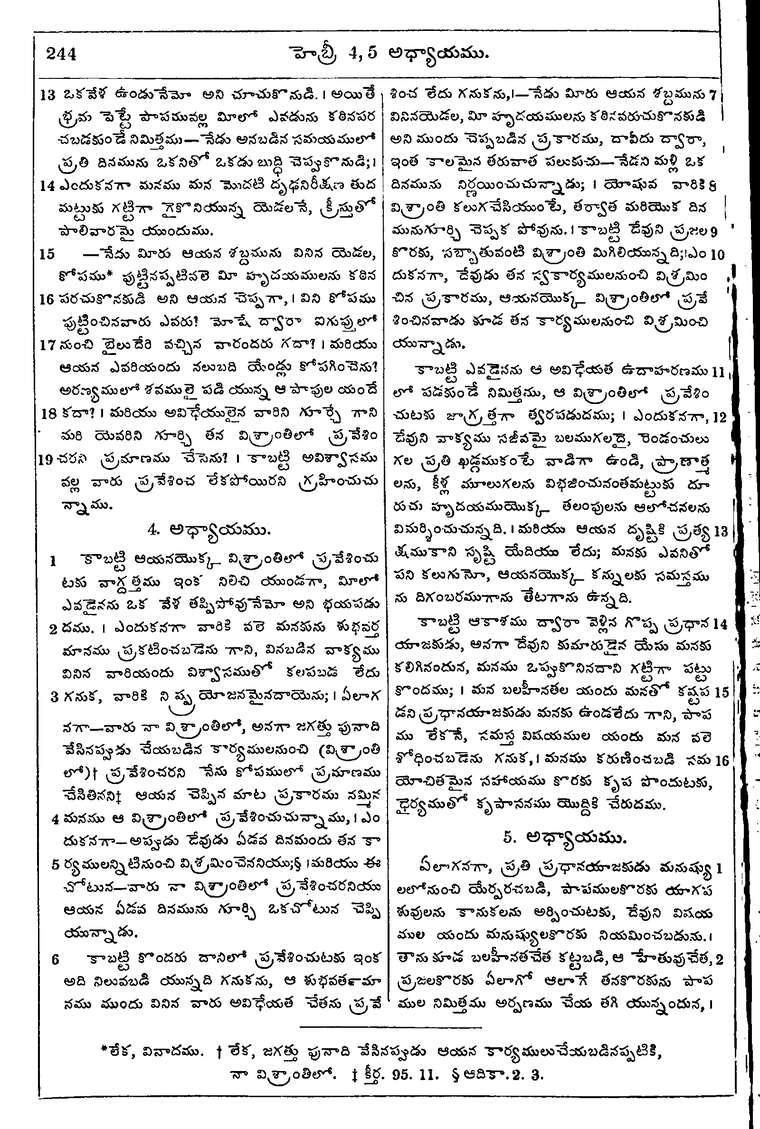 244 హెబ్రీ 4, 5 అధ్యాయము.
13 ఒకవేళ ఉండునేమో అని చూచుకొనుడి. । అయితే
భ్రమ పెట్టే పాపమువల్ల మీలో ఎవడును కఠినపర
చబడకుండే నిమిత్తము—నేడు అనబడిన సమయములో
ప్రతి దినమును ఒకనితో ఒకడు బుద్ధి చెప్పుకొనుడి; ।
14 ఎందుకనగా మనము మన మొదటి దృఢనిరీక్షణ తుద
మట్టుకు గట్టిగా గైకొనియున్న యెడలనే, క్రీస్తుతో
పాలివారమై యుందుము.
15 —నేడు మీరు ఆయన శబ్దమును వినిన యెడల,
కోపము* పుట్టినప్పటివలె మీ హృదయములను కఠిన
16 పరచుకొనకుడి అని ఆయన చెప్పగా, । విని కోపము
పుట్టించినవారు ఎవరు? మోషే ద్వారా ఐగుప్తులో
17 నుంచి బైలుదేరి వచ్చిన వారందరు గదా? । మరియు
ఆయన ఎవరియందు నలుబది యేండ్లు కోపగించెను?
అరణ్యములో శవములై పడి యున్న ఆ పాపుల యందే
18 కదా? । మరియు అవిధేయులైన వారిని గూర్చే గాని
మరి యెవరిని గూర్చి తన విశ్రాంతిలో ప్రవేశిం
19 చరని ప్రమాణము చేసెను? । కాబట్టి అవిశ్వాసము
వల్ల వారు ప్రవేశించ లేకపోయిరని గ్రహించుచు
న్నాము.
4. అధ్యాయము.
1 కాబట్టి ఆయనయొక్క విశ్రాంతిలో ప్రవేశించు
టకు వాగ్దత్తము ఇంక నిలిచి యుండగా, మీలో
ఎవడైనను ఒక వేళ తప్పిపోవునేమో అని భయపడు
2 దము. । ఎందుకనగా వారికి వలె మనకును శుభవర్త
మానము ప్రకటించబడెను గాని, వినబడిన వాక్యము
వినిన వారియందు విశ్వాసముతో కలపబడ లేదు
3 గనుక, వారికి నిష్ప్రయోజనమైనదాయెను; । ఏలాగ
నగా—వారు నా విశ్రాంతిలో, అనగా జగత్తు పునాది
వేసినప్పుడు చేయబడిన కార్యములనుంచి (విశ్రాంతి
లో)† ప్రవేశించరని నేను కోపములో ప్రమాణము
చేసితిని‡ ఆయన చెప్పిన మాట ప్రకారము నమ్మిన
4 మనము ఆ విశ్రాంతిలో ప్రవేశించుచున్నాము, । ఎం
దుకనగా—అప్పుడు దేవుడు ఏడవ దినమందు తన కా
5 ర్యములన్నిటినుంచి విశ్రమించెననియు;§ । మరియు ఈ
చోటున—వారు నా విశ్రాంతిలో ప్రవేశించరనియు
ఆయన ఏడవ దినమును గూర్చి ఒకచోటున చెప్పి
యున్నాడు.
6 కాబట్టి కొందరు దానిలో ప్రవేశించుటకు ఇంక
అది నిలువబడి యున్నది గనుకను, ఆ శుభవర్తమా
నము ముందు వినిన వారు అవిధేయత చేతను ప్రవే
శించ లేదు గనుకను, ।—నేడు మీరు ఆయన శబ్దమును 7
వినినయెడల, మీ హృదయములను కఠినపరుచుకొనకుడి
అని ముందు చెప్పబడిన ప్రకారము, దావీదు ద్వారా,
ఇంత కాలమైన తరువాత పలుకుచు—నేడని మళ్లి ఒక
దినమును నిర్ణయించుచున్నాడు; । యోషువ వారికి 8
విశ్రాంతి కలుగచేసియుంటే, తర్వాత మరియొక దిన
మునుగూర్చి చెప్పక పోవును. । కాబట్టి దేవుని ప్రజల 9
కొరకు, సబ్బాతువంటి విశ్రాంతి మిగిలియున్నది; । ఎం 10
దుకనగా, దేవుడు తన స్వకార్యములనుంచి విశ్రమిం
చిన ప్రకారము, ఆయనయొక్క విశ్రాంతిలో ప్రవే
శించినవాడు కూడ తన కార్యములనుంచి విశ్రమించి
యున్నాడు.
కాబట్టి ఎవడైనను ఆ అవిధేయత ఉదాహరణము 11
లో పడకుండే నిమిత్తము, ఆ విశ్రాంతిలో ప్రవేశిం
చుటకు జాగ్రత్తగా త్వరపడుదము; । ఎందుకనగా, 12
దేవుని వాక్యము సజీవమై బలముగలదై, రెండంచులు
గల ప్రతి ఖడ్గముకంటే వాడిగా ఉండి, ప్రాణాత్మ
లను, కీళ్ల మూలుగలను విభజించునంతమట్టుకు దూ
రుచు హృదయముయొక్క తలంపులను ఆలోచనలను
విమర్శించుచున్నది. । మరియు ఆయన దృష్టికి ప్రత్య 13
క్షముకాని సృష్టి యేదియు లేదు; మనకు ఎవనితో
పని కలుగునో, ఆయనయొక్క కన్నులకు సమస్తము
ను దిగంబరముగాను తేటగాను ఉన్నది.
కాబట్టి ఆకాశము ద్వారా వెళ్లిన గొప్ప ప్రధాన 14
యాజకుడు, అనగా దేవుని కుమారుడైన యేసు మనకు
కలిగినందున, మనము ఒప్పుకొనినదాని గట్టిగా పట్టు
కొందము; । మన బలహీనతల యందు మనతో కష్టప 15
డని ప్రధానయాజకుడు మనకు ఉండలేదు గాని, పాప
ము లేకనే, సమస్త విషయముల యందు మన వలె
శోధించబడెను గనుక, । మనము కరుణించబడి సమ 16
యోచితమైన సహాయము కొరకు కృప పొందుటకు,
ధైర్యముతో కృపాసనము యొద్దికి చేరుదము.
5. అధ్యాయము.
ఏలాగనగా, ప్రతి ప్రధానయాజకుడు మనుష్యు 1
లలోనుంచి యేర్పరచబడి, పాపములకొరకు యాగప
శువులను కానుకలను అర్పించుటకు, దేవుని విషయ
ముల యందు మనుష్యులకొరకు నియమించబడును. ।
తాను కూడ బలహీనతచేత కట్టబడి, ఆ హేతువుచేత, 2
ప్రజలకొరకు ఏలాగో ఆలాగే తనకొరకును పాప
ముల నిమిత్తము అర్పణము చేయ తగి యున్నందున, ।
*లేక, వివాదము. † లేక, జగత్తు పునాది వేసినప్పుడు ఆయన కార్యములుచేయబడినప్పటికి,
నా విశ్రాంతిలో. ‡ కీర్త. 95. 11. § ఆదికా. 2. 3.